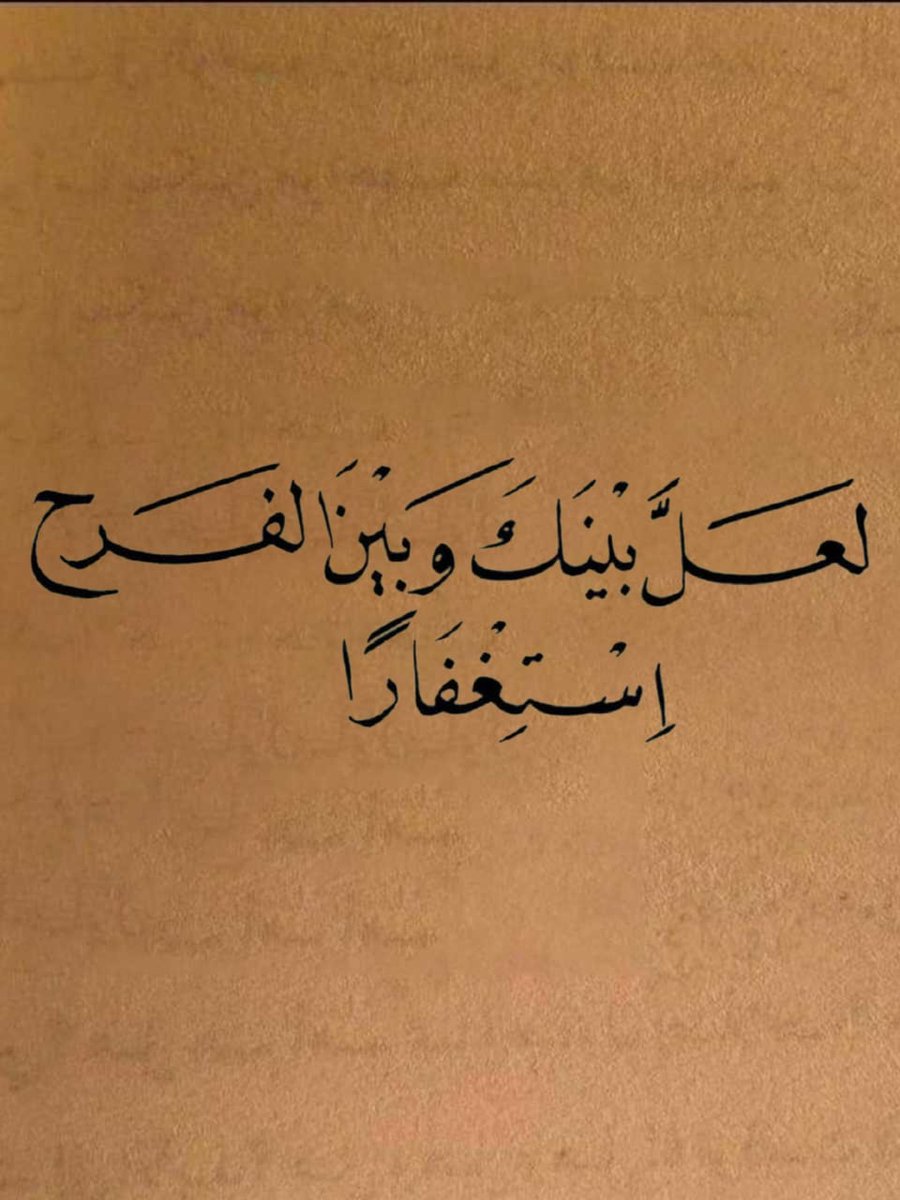 لعَلَّ بيْنَكَ وَبَيْنَ الفَرح
إسْتِغْفَارًا